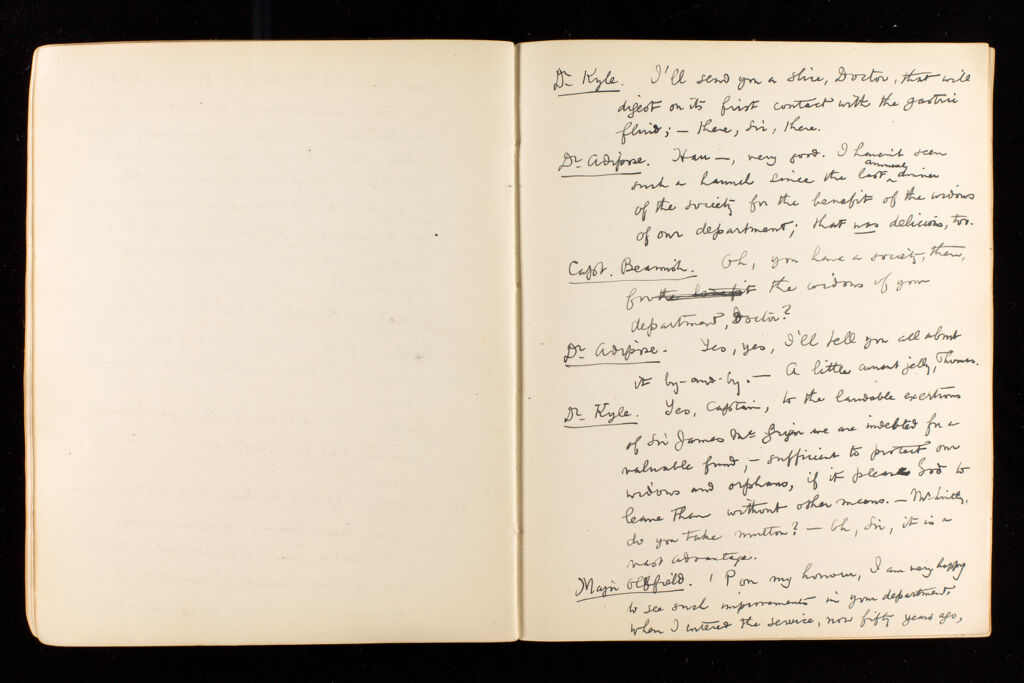 Dr. Kyle. I'll send you a slice, Doctor, that will
digest on its first contact with the gastric
fluid; — there, Sir, there.
Dr. Adipose. Hau —, very good. I haven't seen
annual
such a haunch since the last dinner
of the society for the benefit of the widows
of our department; that was delicious, too.
Capt. Beamish. Oh, you have a society, then,
for the benefit the widows of your
department, Doctor?
Dr. Adipose. Yes, yes, I'll tell you all about
it by-and-by. — A little currant jelly, Thomas.
Dr. Kyle. Yes, Captain, to the laudable exertions
of Sir James McGrigor we are indebted for a
valuable fund, — sufficient to protect our
widows and orphans, if it please God to
leave them without other means. — Mr.
do you take mutton? — Oh, Sir, it is a
vast advantage.
Major Oldfield. 'Pon my honour, I am very happy
to see such improvements in your department.
When I entered the service, now fifty years ago,